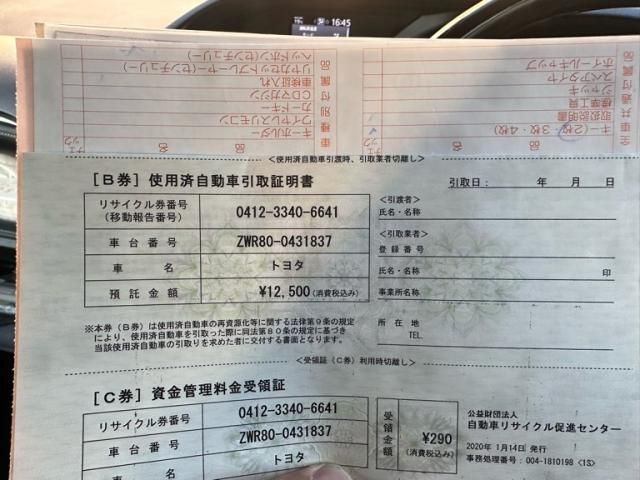 16:45
全車共通付属品
キー(2枚・3枚・4枚)
取扱説明書
標準工具
ジャッキ
スペアタイヤ
ホイールキャップ
車種別付属品
キーホルダー
ワイヤレスリモコン
カードキー
CDマガジン
車検証入れ
リヤカセットプレーヤー(センチュリー)
ヘッドホン(センチュリー)
<使用済自動車引渡時、引取業者切離し>
[B券] 使用済自動車引取証明書
引取日： 年 月 日
リサイクル券番号
(移動報告番号)
0412-3340-6641
車台番号 ZWR80-0431837
車名 トヨタ
預託金額 ¥12,500 (消費税込み)
<引渡者>
氏名・名称
<引取業者>
登録番号
氏名・名称 印
事業所名称
所在地
TEL.
※本券（B券）は使用済自動車の再資源化等に関する法律第9条の規定
により、使用済自動車を引取った際に同法第80条の規定に基づき
当該使用済自動車の引取りを求めた者に交付する書面となります。
<受領証（C券）利用時切離し>
[C券] 資金管理料金受領証
リサイクル券番号 0412-3340-6641
車台番号 ZWR80-0431837
車名 トヨタ
受領金額 ¥290
(消費税込み)
公益財団法人
自動車リサイクル促進センター
2020年 1月14日 発行
事務処理番号：004-1810198 <1S>